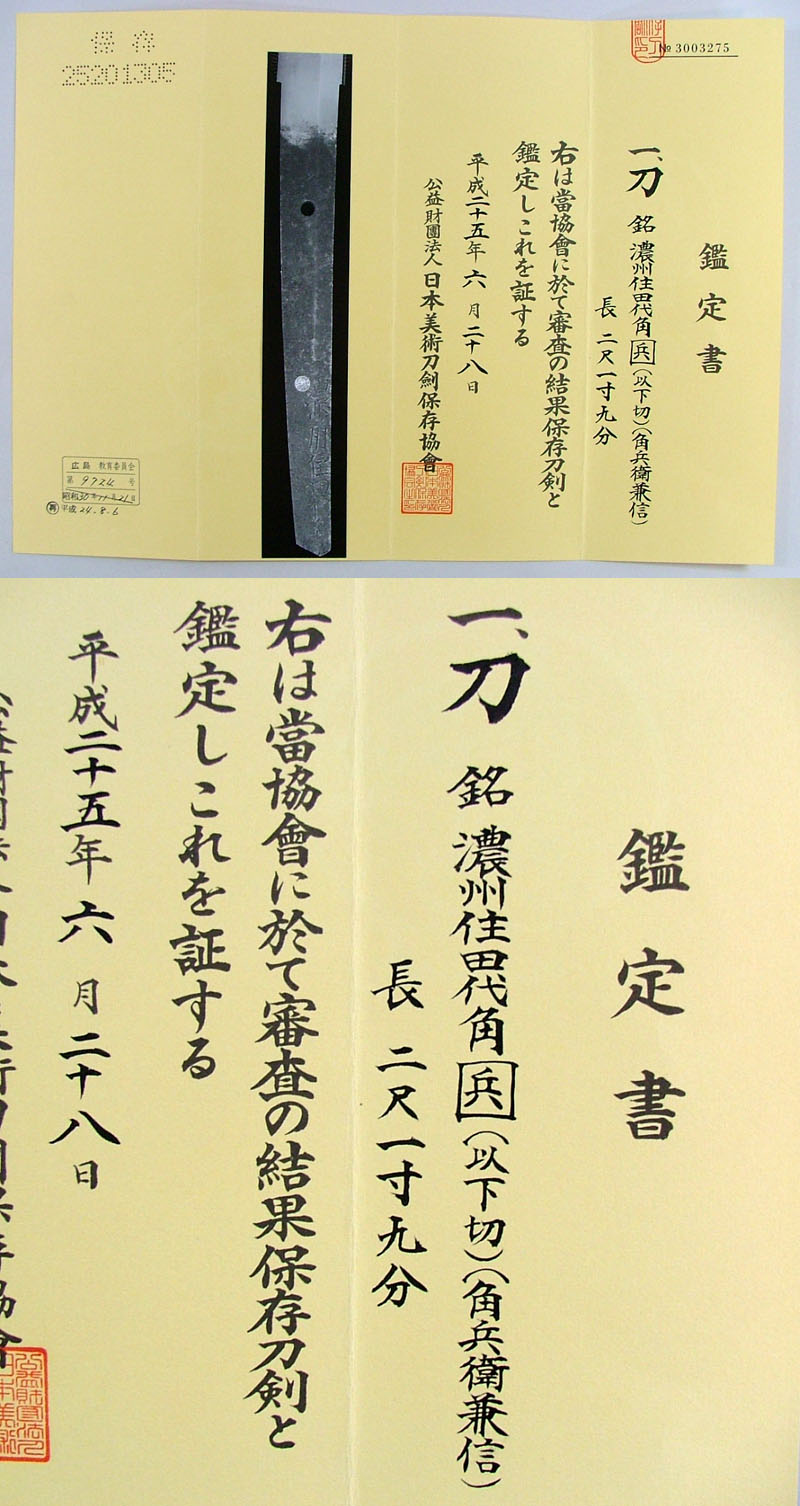 № 3003275
鑑定書
一、刀 銘 濃州住田代角兵(以下切)(角兵衛兼信)
長 二尺一寸九分
右は當協會に於て審査の結果保存刀剣と
鑑定しこれを証する
平成二十五年六月二十八日
公益財團法人日本美術刀劍保存協會
保存
25201305
広島 教育委員会
第 9724 号
昭和30年11月21日
再 平成 24.8.6
鑑定書
一、刀 銘 濃州住田代角兵(以下切)(角兵衛兼信)
長 二尺一寸九分
右は當協會に於て審査の結果保存刀剣と
鑑定しこれを証する
平成二十五年六月二十八日